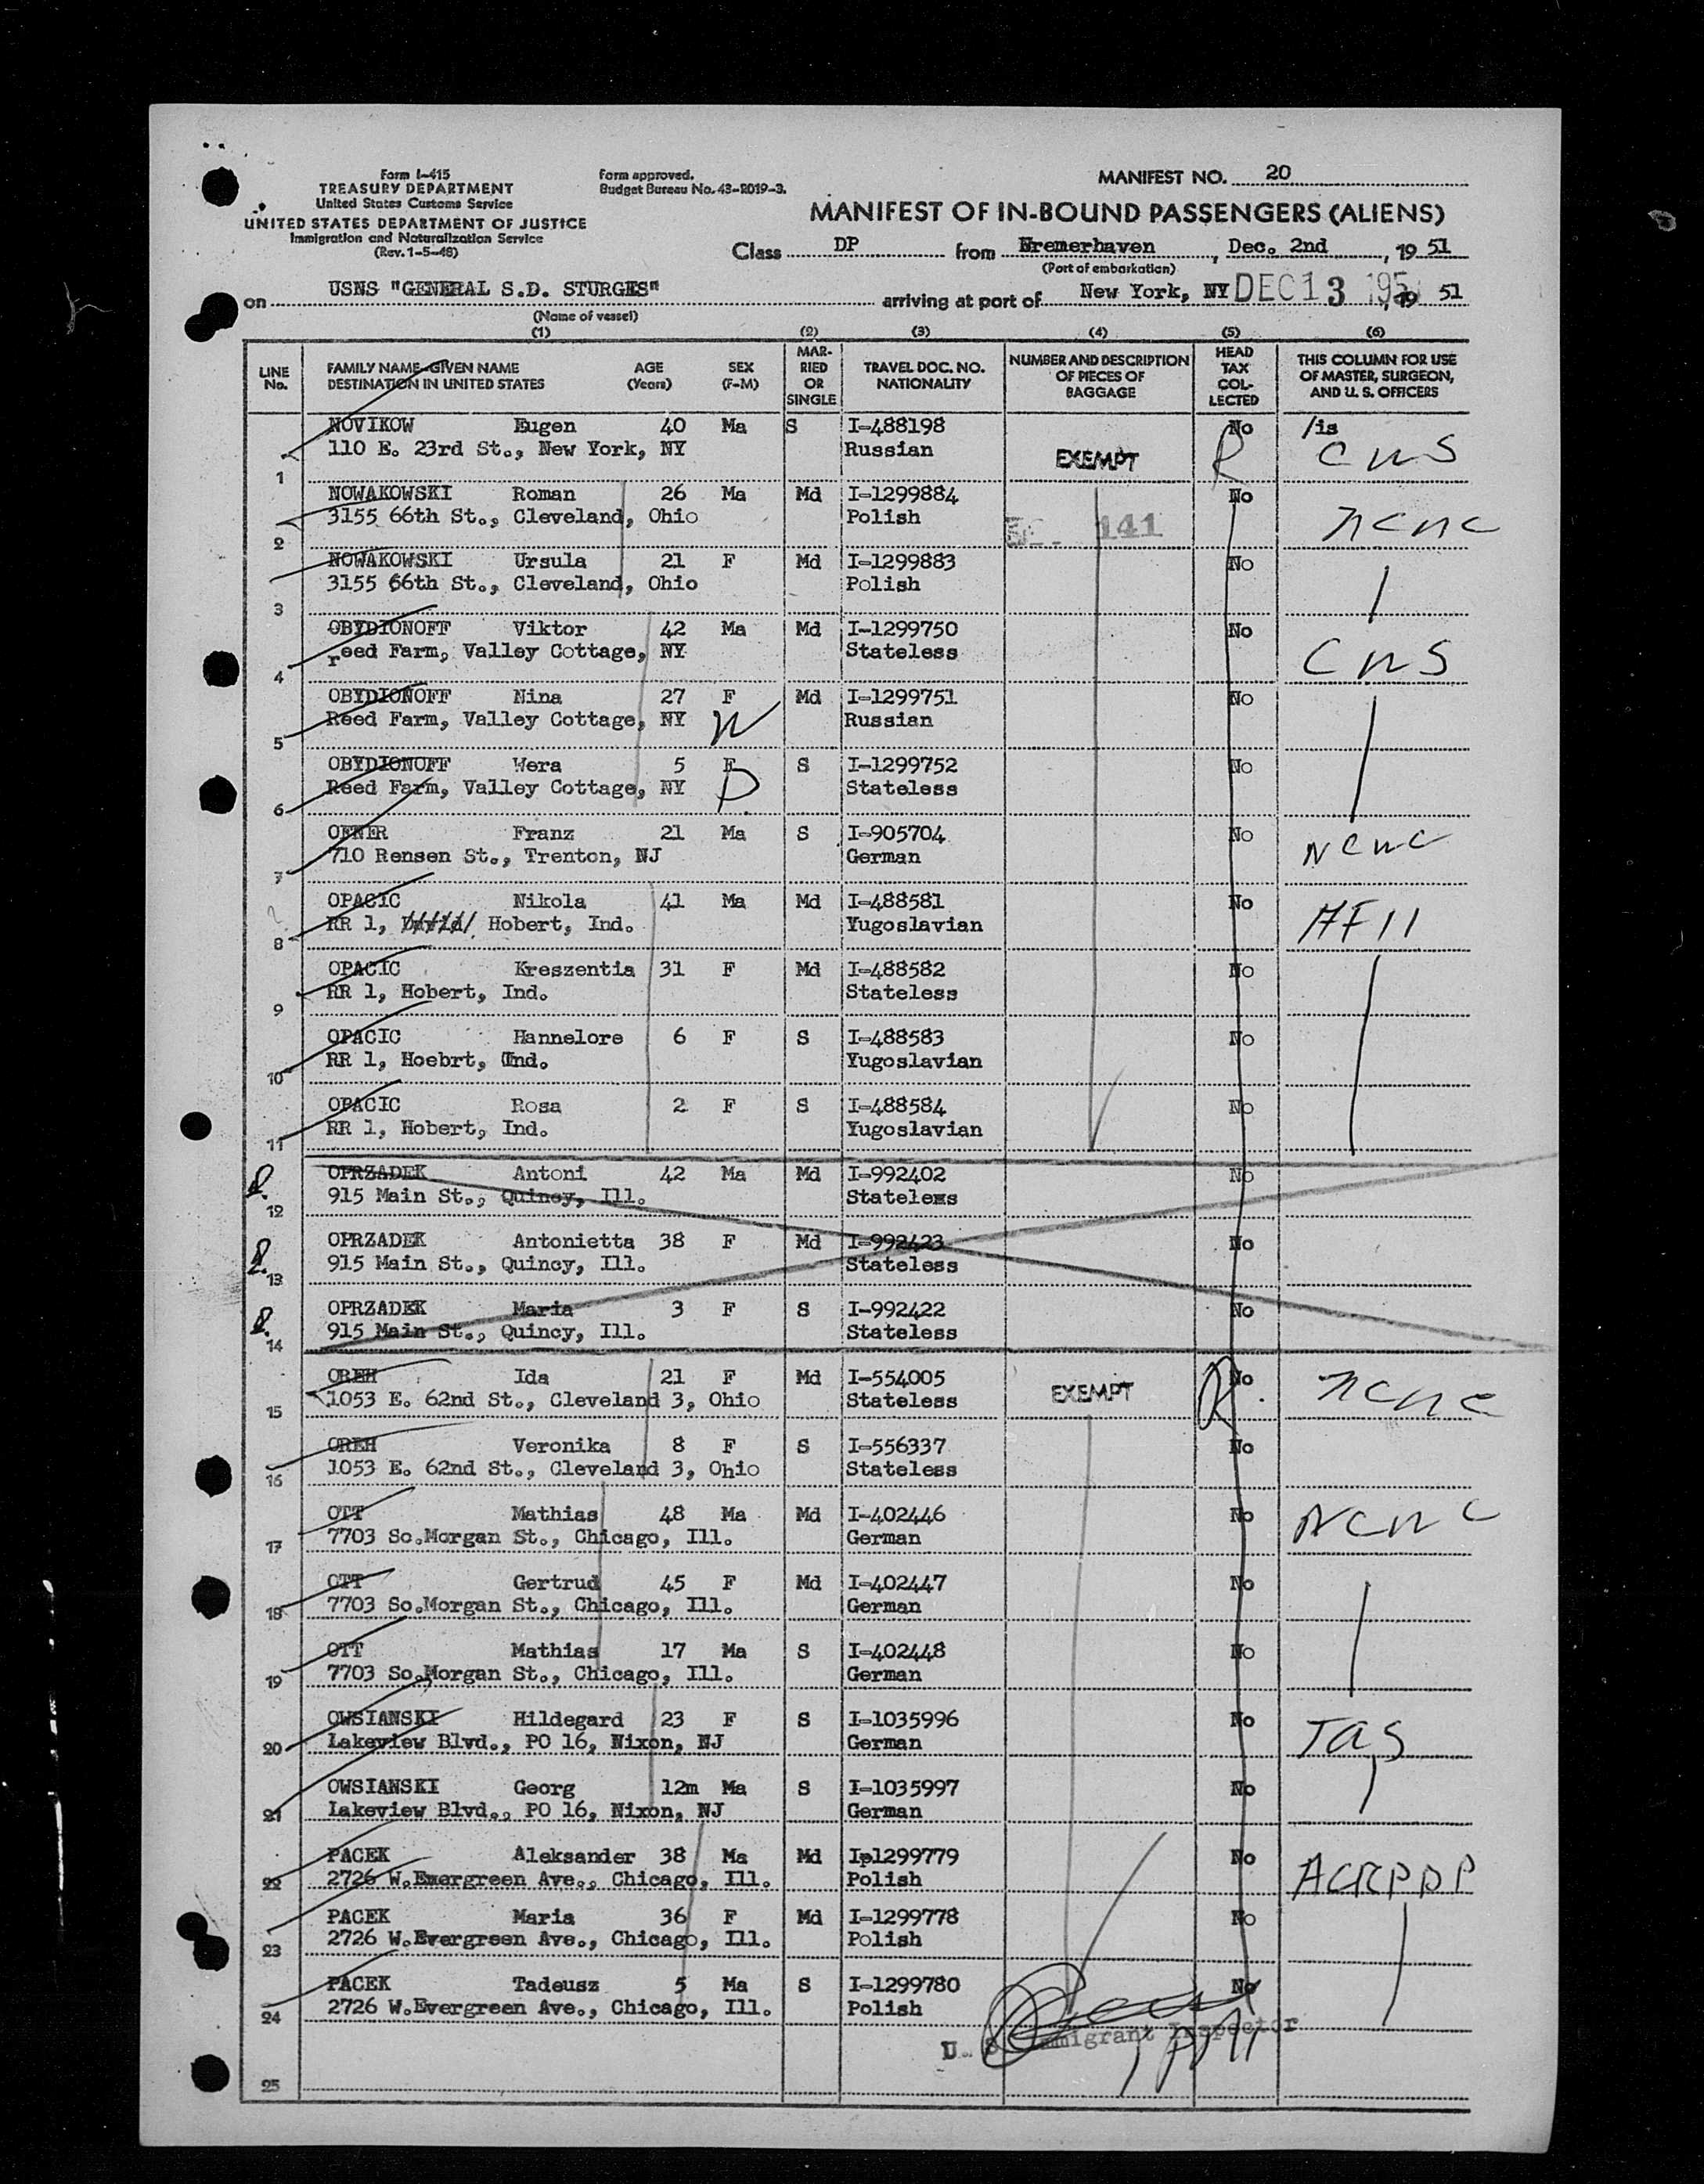 Form I-415
TREASURY DEPARTMENT
United States Customs Service
UNITED STATES DEPARTMENT OF JUSTICE
Immigration and Naturalization Service
(Rev. 1-5-48)
Form approved.
Budget Bureau No. 43-R019-3.
MANIFEST NO. 20
MANIFEST OF IN-BOUND PASSENGERS (ALIENS)
Class DP from Bremerhaven, Dec. 2nd, 19 51
(Port of embarkation)
on USNS "GENERAL S.D. STURGES" arriving at port of New York, NY DEC 13 195 19 51
(Name of vessel)
(1) (2) (3) (4) (5) (6)
LINE No.
FAMILY NAME-GIVEN NAME AGE SEX
DESTINATION IN UNITED STATES (Years) (F-M)
MAR-RIED OR SINGLE
TRAVEL DOC. NO. NATIONALITY
NUMBER AND DESCRIPTION OF PIECES OF BAGGAGE
HEAD TAX COL-LECTED
THIS COLUMN FOR USE OF MASTER, SURGEON, AND U. S. OFFICERS
NOVIKOW Eugen 40 Ma S I-488198 No /is
110 E. 23rd St., New York, NY Russian EXEMPT R CNS
1
NOWAKOWSKI Roman 26 Ma Md I-1299884 No
3155 66th St., Cleveland, Ohio Polish 141 NCNC
2
NOWAKOWSKI Ursula 21 F Md I-1299883 No
3155 66th St., Cleveland, Ohio Polish
3
OBYDIONOFF Viktor 42 Ma Md I-1299750 No
reed Farm, Valley Cottage, NY Stateless CNS
4
OBYDIONOFF Nina 27 F Md I-1299751 No
Reed Farm, Valley Cottage, NY W Russian
5
OBYDIONOFF Wera 5 F S I-1299752 No
Reed Farm, Valley Cottage, NY D Stateless
6
OFNER Franz 21 Ma S I-905704 No
710 Rensen St., Trenton, NJ German NCNC
7
OPACIC Nikola 41 Ma Md I-488581 No
RR 1, Hobert, Ind. Yugoslavian AFII
8
OPACIC Kreszentia 31 F Md I-488582 No
RR 1, Hobert, Ind. Stateless
9
OPACIC Hannelore 6 F S I-488583 No
RR 1, Hoebrt, Ind. Yugoslavian
10
OPACIC Rosa 2 F S I-488584 No
RR 1, Hobert, Ind. Yugoslavian
11
OPRZADEK Antoni 42 Ma Md I-992402 No
915 Main St., Quincy, Ill. Stateless
12
OPRZADEK Antonietta 38 F Md I-992423 No
915 Main St., Quincy, Ill. Stateless
13
OPRZADEK Maria 3 F S I-992422 No
915 Main St., Quincy, Ill. Stateless
14
OREH Ida 21 F Md I-554005 EXEMPT No
1053 E. 62nd St., Cleveland 3, Ohio Stateless R NCNC
15
OREH Veronika 8 F S I-556337 No
1053 E. 62nd St., Cleveland 3, Ohio Stateless
16
OTT Mathias 48 Ma Md I-402446 No
7703 So.Morgan St., Chicago, Ill. German NCNC
17
OTT Gertrud 45 F Md I-402447 No
7703 So.Morgan St., Chicago, Ill. German
18
OTT Mathias 17 Ma S I-402448 No
7703 So.Morgan St., Chicago, Ill. German
19
OWSIANSKI Hildegard 23 F S I-1035996 No
Lakeview Blvd., PO 16, Nixon, NJ German TAS
20
OWSIANSKI Georg 12m Ma S I-1035997 No
Lakeview Blvd., PO 16, Nixon, NJ German
21
PACEK Aleksander 38 Ma Md Ip1299779 No
2726 W.Emergreen Ave., Chicago, Ill. Polish ACRPDP
22
PACEK Maria 36 F Md I-1299778 No
2726 W.Evergreen Ave., Chicago, Ill. Polish
23
PACEK Tadeusz 5 Ma S I-1299780 No
2726 W.Evergreen Ave., Chicago, Ill. Polish
24
U. S. Immigrant Inspector
25